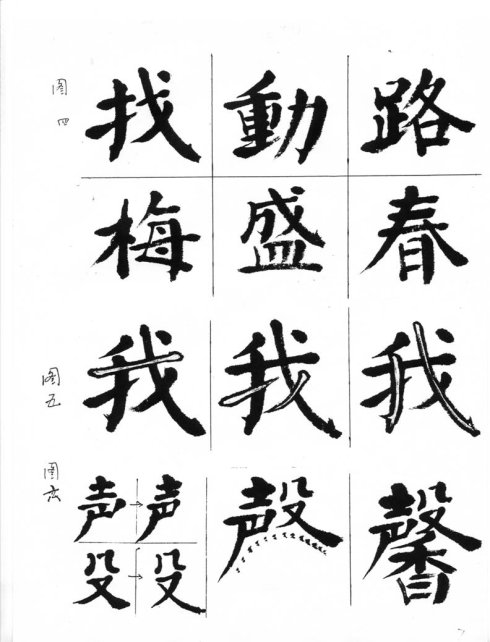 图四
找 動 路
梅 盛 春
图五
我 我 我
图六
声→声 殸 馨
殳→殳